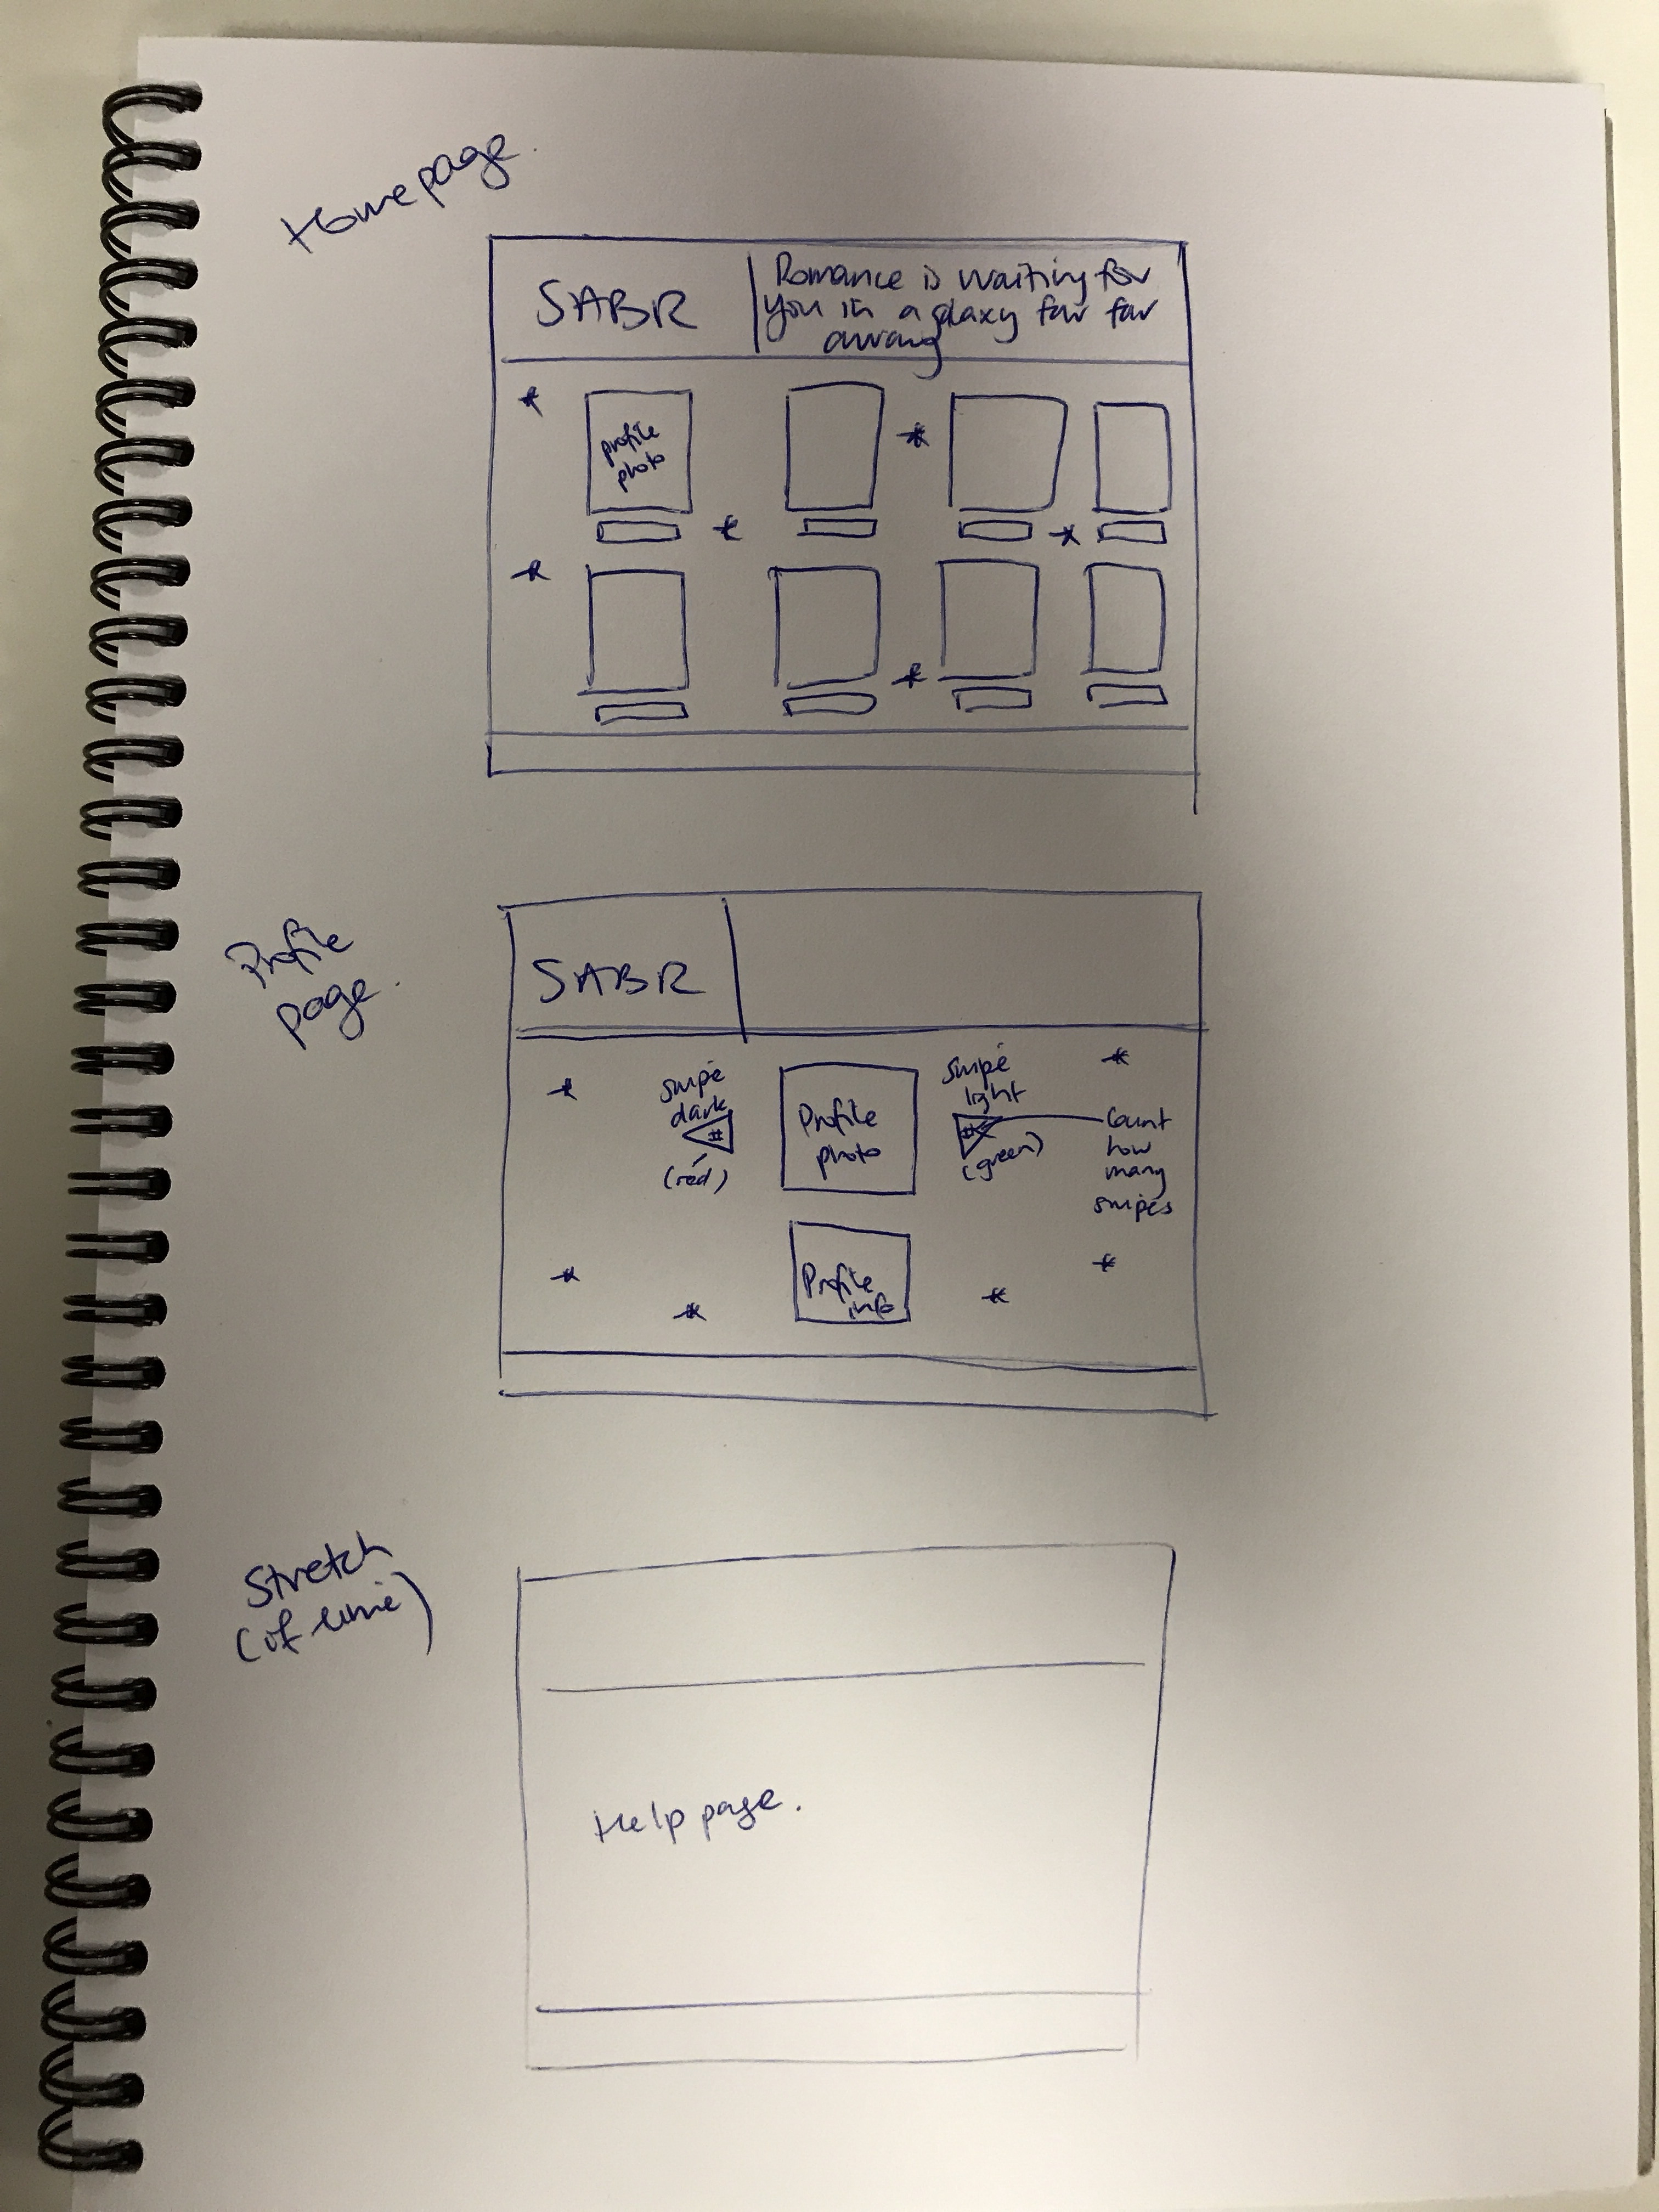 Homepage.
SABR
Romance is waiting for
you in a galaxy far far
away
profile
photo
Profile
page.
SABR
swipe
dark
#
(red)
Profile
photo
swipe
light
#
(green)
Count
how
many
swipes
Profile
info
Stretch
(if time)
Help page.